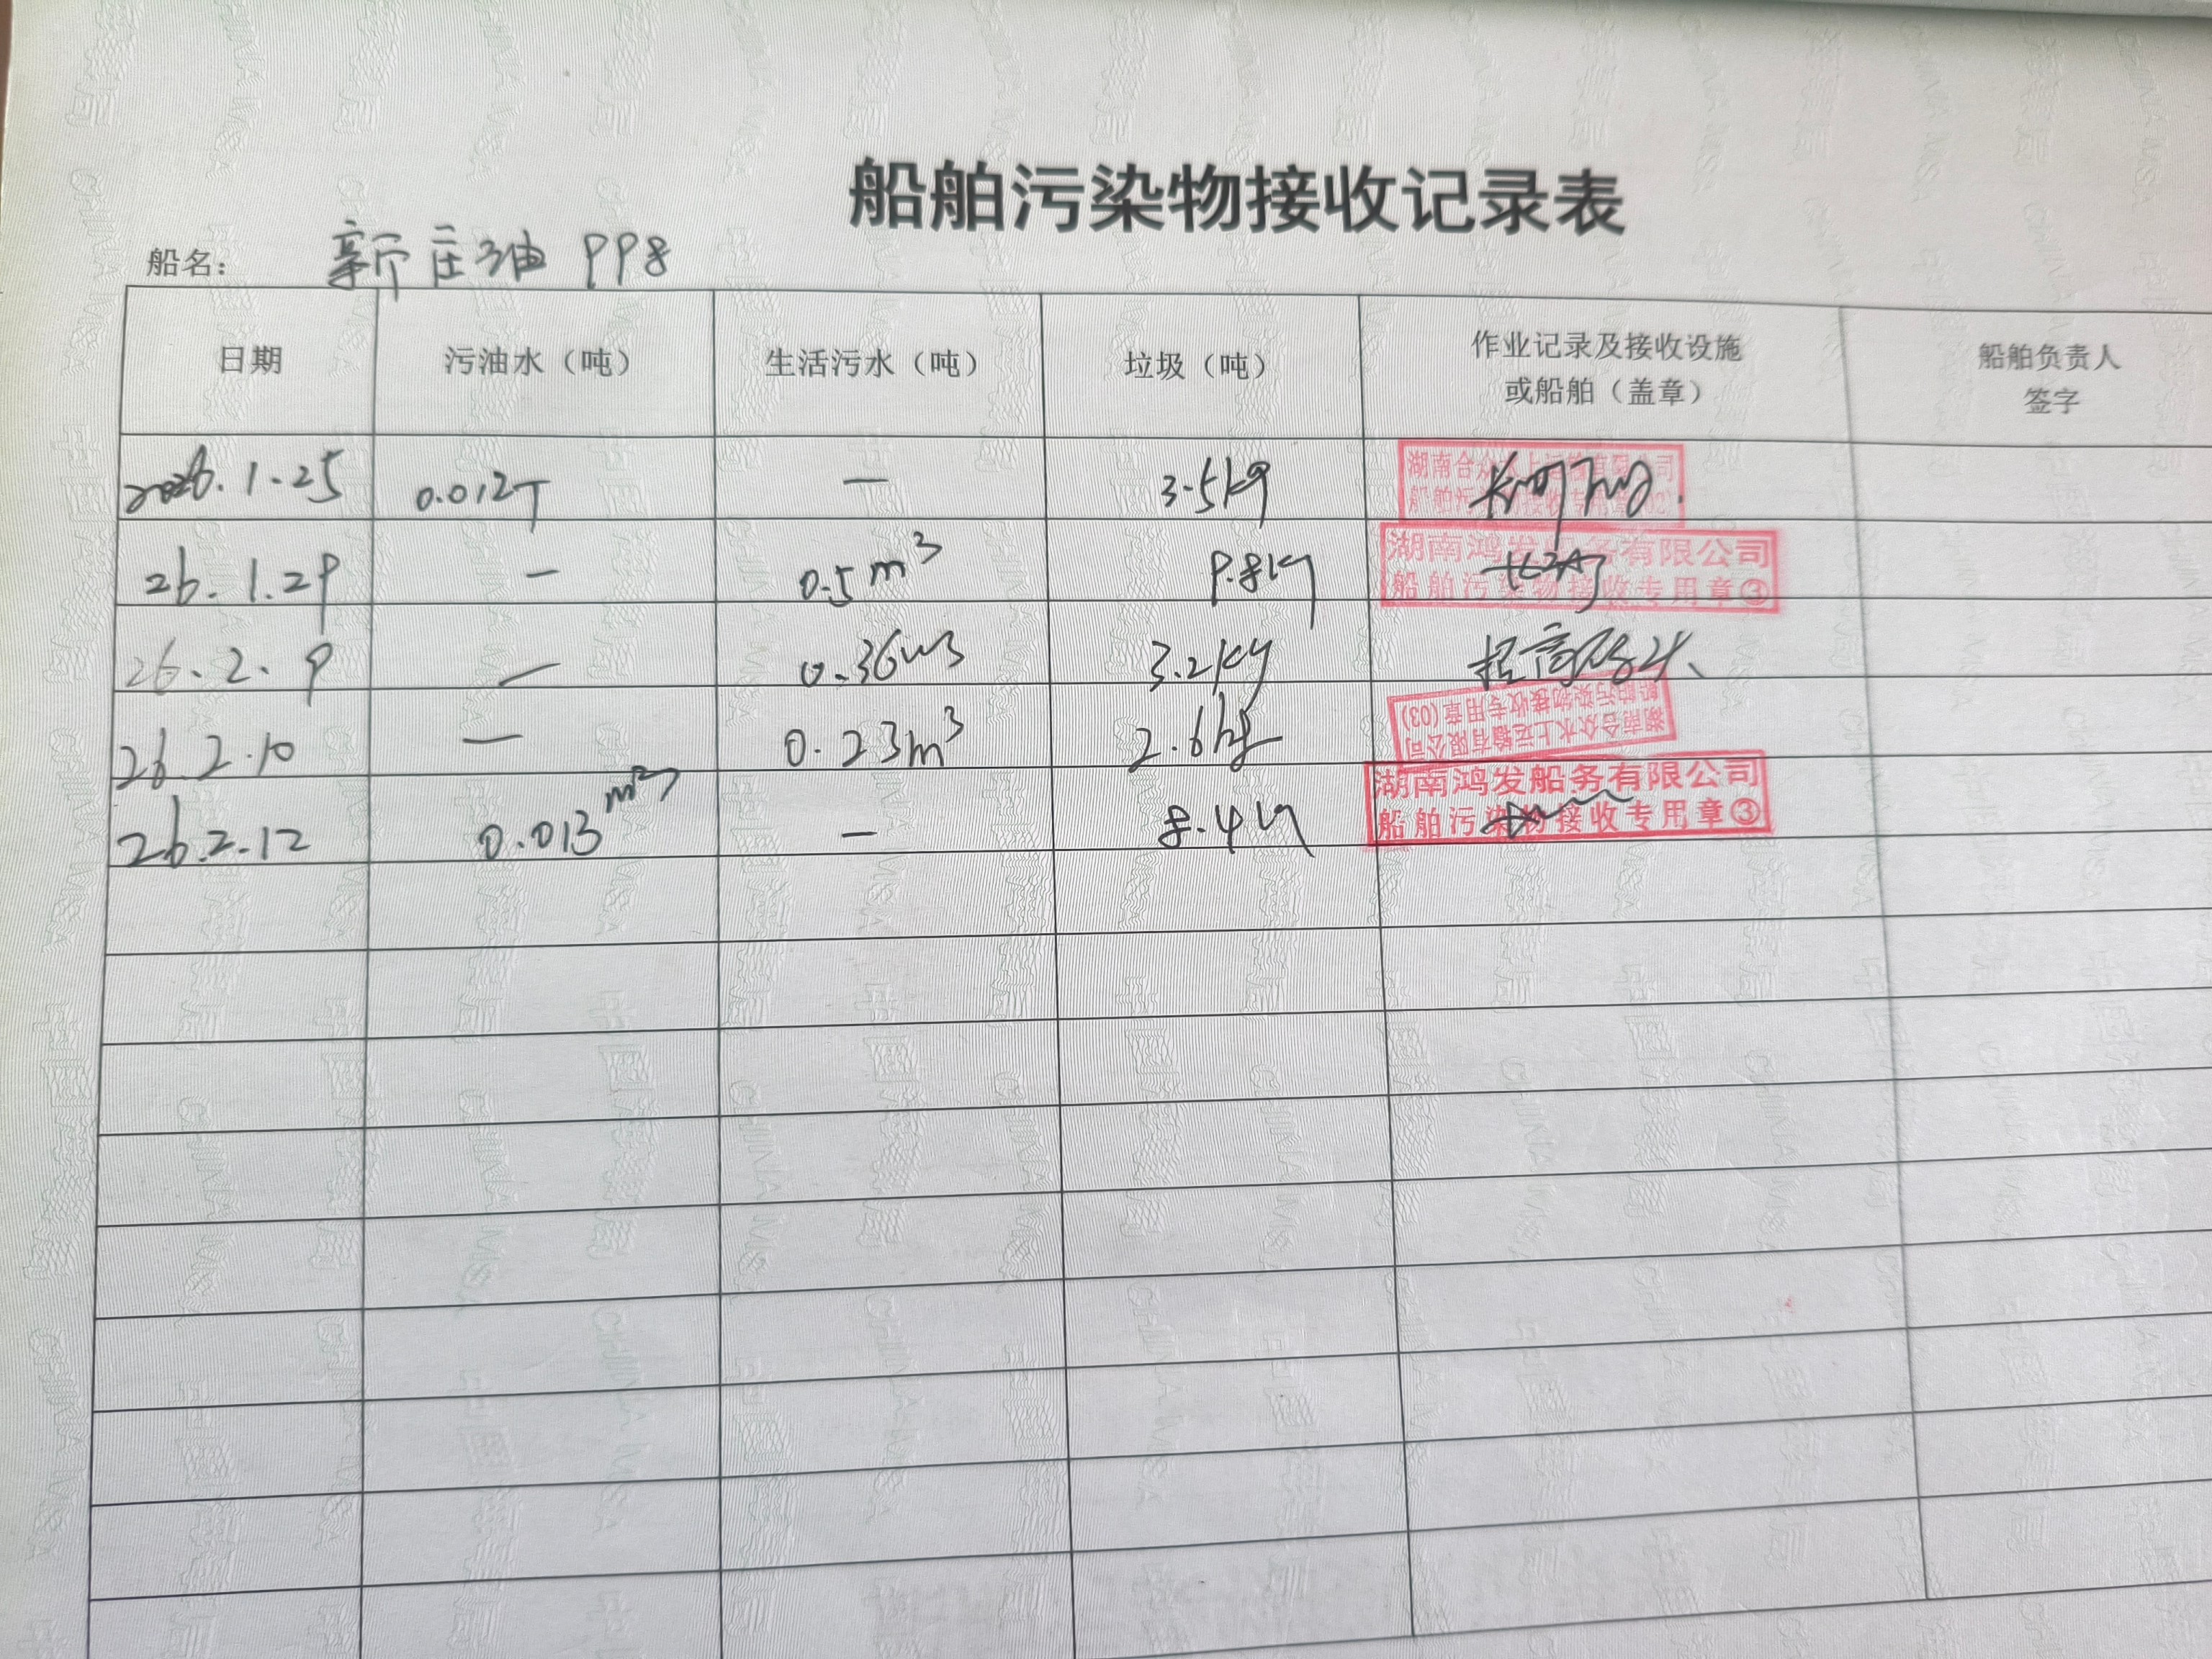 船舶污染物接收记录表
船名： 新庄油 998
日期 污油水（吨） 生活污水（吨） 垃圾（吨） 作业记录及接收设施或船舶（盖章） 船舶负责人签字
2026.1.25 0.012T — 3.5kg 湖南合众水上运输有限公司
船舶污染物接收专用章(02)
26.1.29 — 0.5m³ 9.8kg 湖南鸿发船务有限公司
船舶污染物接收专用章③
26.2.9 — 0.36m3 3.2kg
26.2.10 — 0.23m³ 2.6kg 湖南合众水上运输有限公司
船舶污染物接收专用章(03)
26.2.12 0.013m³ — 8.4kg 湖南鸿发船务有限公司
船舶污染物接收专用章③